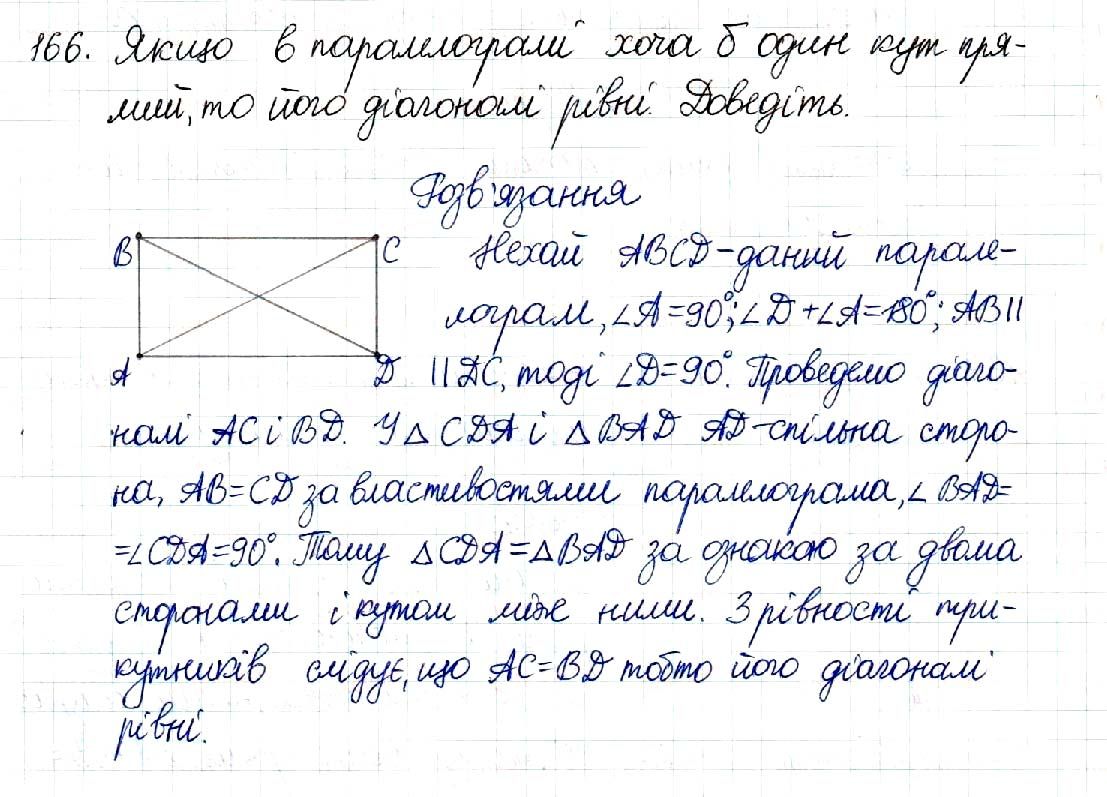 166. Якщо в паралелограмі хоча б один кут пря-
мий, то його діагоналі рівні. Доведіть.
Розв'язання
B
C
A
D
Нехай ABCD-даний парале-
лограм, ∠A=90°; ∠D+∠A=180°; AB||
||DC, тоді ∠D=90°. Проведемо діаго-
налі AC і BD. У △CDA і △BAD AD-спільна сторо-
на, AB=CD за властивостями паралелограма, ∠BAD=
=∠CDA=90°. Тому △CDA=△BAD за ознакою за двома
сторонами і кутом між ними. З рівності три-
кутників слідує, що AC=BD тобто його діагоналі
рівні.